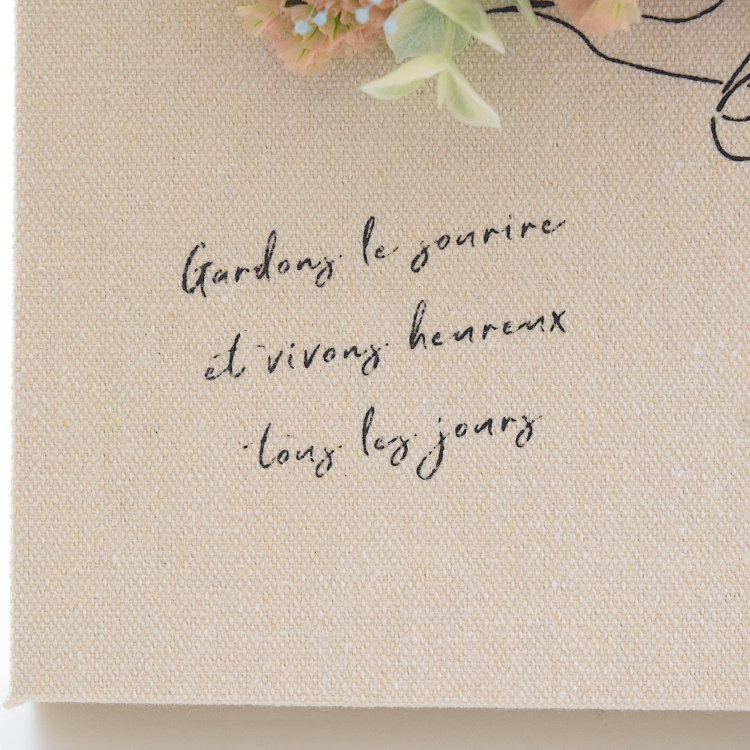 Gardons le sourire
et vivons heureux
tous les jours